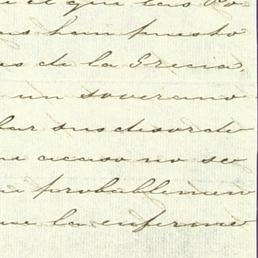 el que las Po
han puesto
de la Grecia,
un soverano
lar sus desorde
acaso no se
probablemen
la enferme